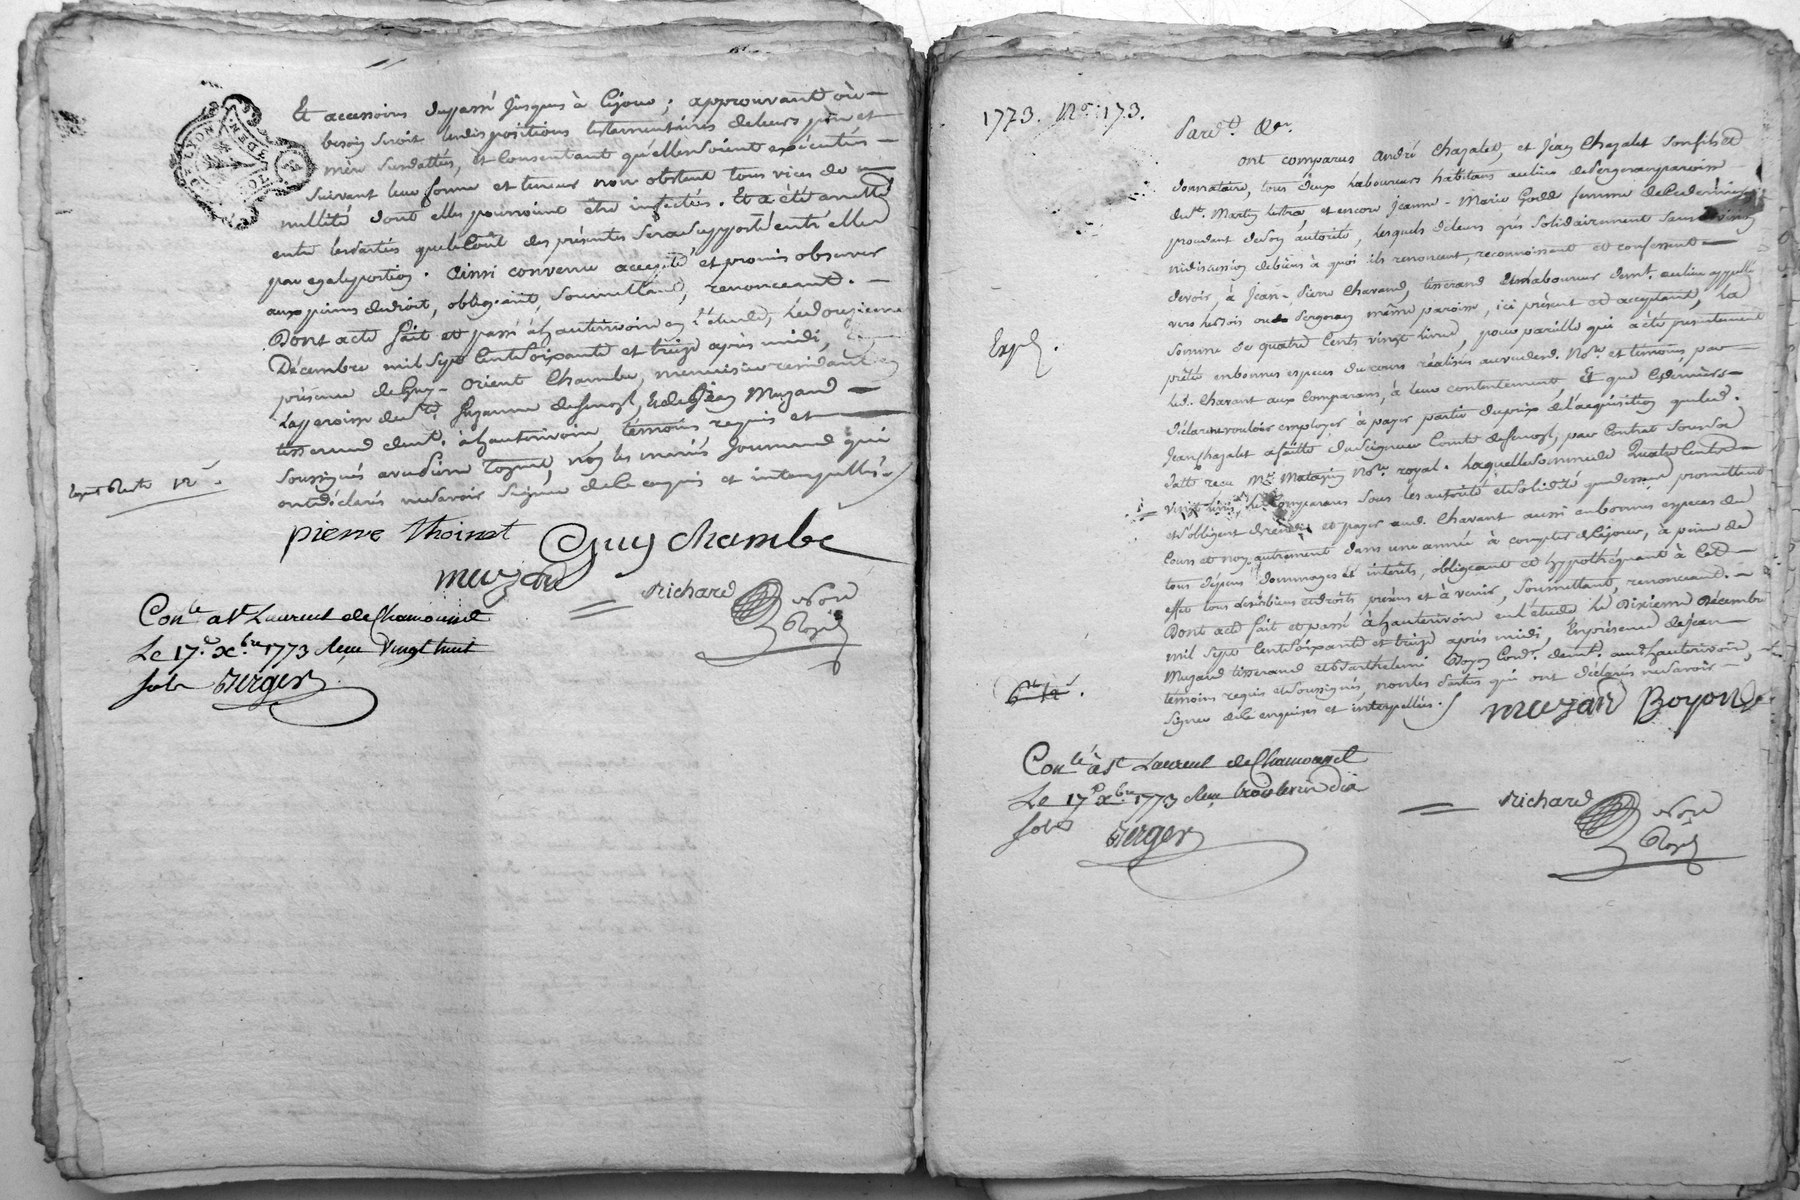 Et accessoires du passé jusques à ce jour ; approuvant où
besoin seroit les dispositions testamentaires de leurs père et
mère susdattés, et consentant qu'elles soient exécutés
suivant leur forme et teneur non obstant tous vices de
nullité dont elles pourroient être infectés. Et a été arretté
entre les parties que le coût des présentes sera supporté entr'elles
par egale portion. Ainsi convenu accepté et promis observer
aux peines de droit, obligeant, soumettant, renonceant.
Dont acte fait et passé à hauterivoire en l'étude, le douzieme
Décembre mil sept cent soixante et treize après midi, En
présence de Guy- orient Chambe, menuisier residant en
la parroisse de Ste. , et de Jean Muzard
tisserand demt. à hauterivoire, temoins requis et
soussignés avec Pierre , non les mariés Journand qui
ont déclarés ne savoir signer de ce enquis et interpellés
12
pierre Thoinet Guy chambe
muzard
Richard Nore Royal
Conlé à St Laurent de Chamousset
Le 17e. Xbre 1773 Reçu Vingt huit
sols Berger
1773. No. 173.
Pardt. &a.
ont comparus André Chazalet, et Jean Chazalet son fils et
donnataire, tous deux laboureurs habitans au lieu de Sergeran parroisse
de St. Martin lestra, et encore Jeanne - Marie Godde femme de ce dernier
procedant de son autorité, lesquels de leurs grés solidairement sans division
ni discussion de biens à quoi ils renoncent, reconnoissent et confessent
devoir, à Jean - Pierre Chavand, tisserand et laboureur demt. au lieu appellé
vers les bois ou de Sergeran même paroisse, ici présent et acceptant, la
somme de quatre cents vingt livres, pour pareille qui a été presentement
Exp.
prêté en bonnes especes du cours réalisés au vu dud. Nore. et temoins, par
led. Chavant aux comparans, à leur contentement Et que ce derniers
déclarent vouloir employer à payer partie du prix de l'acquisition que led.
Jean Chazalet a faitte du seigneur Comte de , par contrat sous sa
datte reçu Me. Notre. royal. Laquelle somme de Quatre Cents
vingt livres, les comparans sous les autorité et solidité que dessus promettent
et s'obligent de rendre et payer aud. Chavant aussi en bonnes especes du
cours et non autrement dans une année à compter de ce jour, à peine de
tous dépens dommages et intérets, obligeant et hypothéquant à cet
effet tous leurs biens et droits présens et à venir, soumettant, renonceant.
Dont acte fait et passé à hauterivoire en l'étude le Dixieme Décembre
mil sept cent soixante et treize après midi, En présence de Jean
Muzard tisserand et Barthelemi Boyon demt. aud. hauterivoire,
temoins requis et soussignés, non les parties qui ont déclarés ne savoir
signer de ce enquises et interpellées.
muzard Boyon
Conlé à St Laurent de Chamousset
Le 17e Xbre 1773 Reçu trois livres dix
sols Berger
Richard Nore Royal